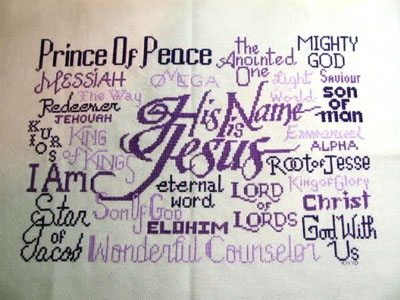 Prince Of Peace
the
Anointed
One
MIGHTY
GOD
MESSIAH
OMEGA
Light
of
World
Saviour
The Way
son
of
man
Redeemer
JEHOVAH
His Name
is
Jesus
Emmanuel
ALPHA
KURIOS
KING
of KINGS
Root of Jesse
I Am
eternal
word
LORD
of
LORDS
King of Glory
Christ
Star
of
Jacob
Son Of God
ELOHIM
God With
Us
Wonderful Counselor